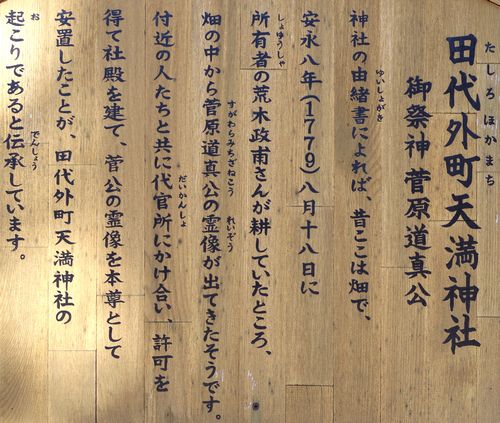 田代外町天満神社
たしろほかまち
御祭神 菅原道真公
神社の由緒書によれば、昔ここは畑で、
ゆいしょがき
安永八年(1779)八月十八日に
所有者の荒木政甫さんが耕していたところ、
しょゆうしゃ
畑の中から菅原道真公の霊像が出てきたそうです。
すがわらみちざねこう れいぞう
付近の人たちと共に代官所にかけ合い、許可を
だいかんしょ
得て社殿を建て、菅公の霊像を本尊として
安置したことが、田代外町天満神社の
起こりであると伝承しています。
お でんしょう